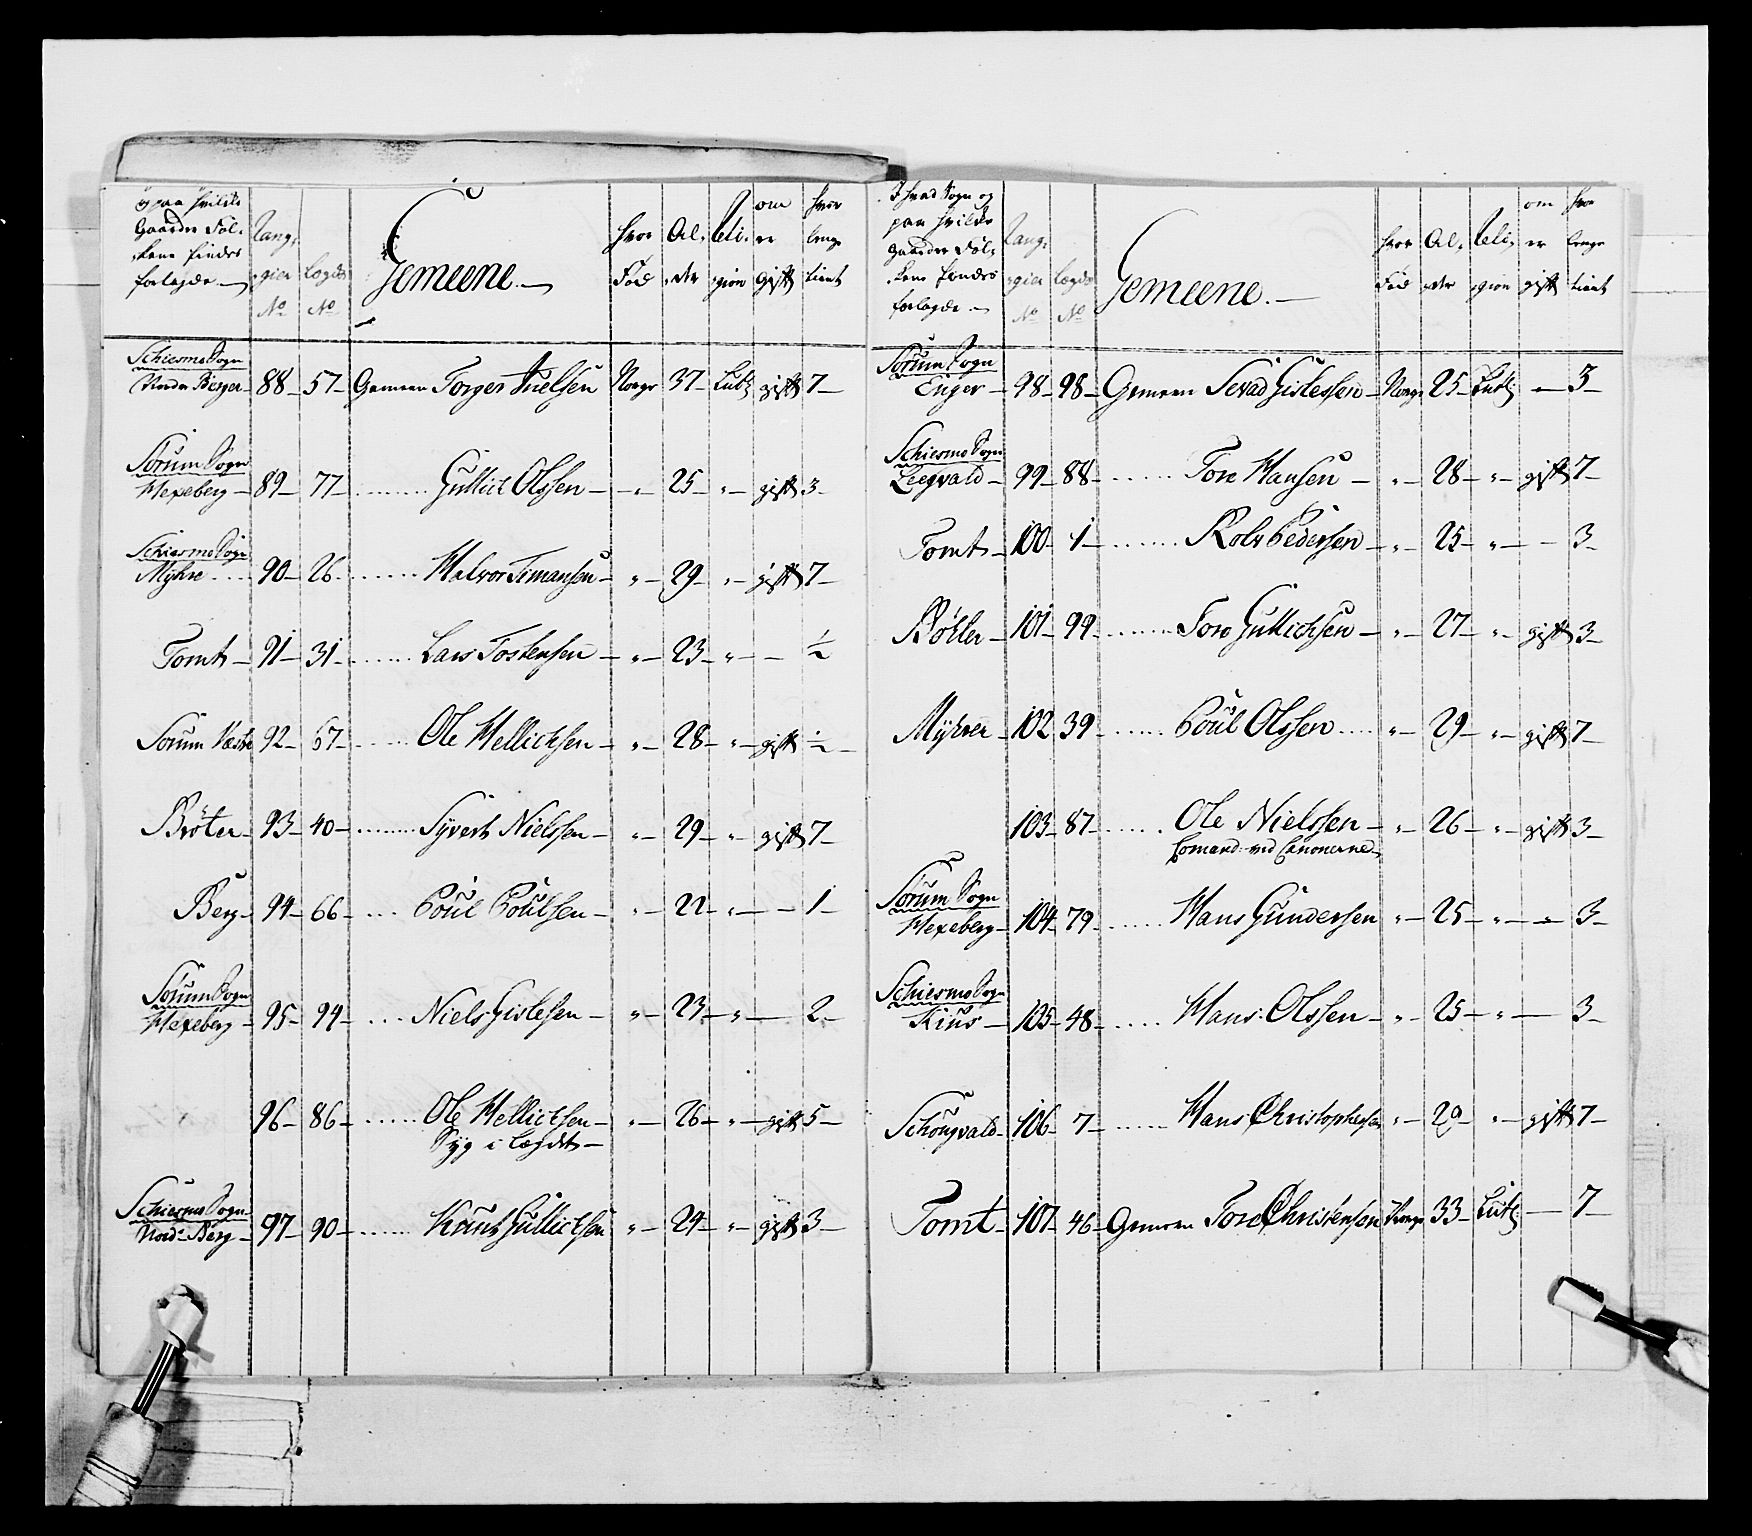 og paa hvilke
Gaarder Fol-
kene findes
forlagde.
Rang:
gier
No
Lægds
No
Gemeene.
hvor
Fød
Al-
der
Reli-
gion
om
er
gift
hvor
lenge
tient
Schiesmo Sogn
Nordre Berger 88 57 Gemeen Torger Nielsen Norge 37 Luth gift 7
Sorum Sogn
Hexeberg 89 77 Gullich Olssen 25 gift 3
Schiesmo Sogn
Myhre 90 26 Halvor Simansen 29 gift 7
Tomt 91 31 Lars Tostensen 23 1/2
Sorum Væstre 92 67 Ole Hellichsen 28 gift 1/2
Bröter 93 40 Syvert Nielssen 29 gift 7
Berg 94 66 Poul Poulsen 22 1
Sorum Sogn
Hexeberg 95 94 Niels Gislesen 23 2
96 86 Ole Hellichsen 26 gift 5
Syg i Lægdet
Schiesmo Sogn
Nord- Berg 97 90 Hans Gullichsen 24 gift 3
I hvad Sogn og
paa hvilke
Gaarder Fol-
kene findes
forlagde.
Rang:
gier
No
Lægds
No
Gemeene.
hvor
Fød
Al-
der
Reli-
gion
om
er
gift
hvor
lenge
tient
Sorum Sogn
Enger 98 98 Gemeen Sevad Gislessen Norge 25 Luth 3
Schiesmo Sogn
Leegvald 99 88 Tore Hansen 28 gift 7
Tomt 100 1 Rolv Pedersen 25 3
Böhler 101 99 Tore Gullichsen 27 gift 3
Myhrer 102 39 Poul Olssen 29 gift 7
103 87 Ole Nielssen 26 gift 3
Comand: ved Canonerne
Sorum Sogn
Hexeberg 104 79 Hans Gundersen 25 3
Schiesmo Sogn
Kius 105 48 Hans Olssen 25 3
Schougvald 106 7 Hans Christophersen 29 gift 7
Tomt 107 46 Gemeen Tore Christensen Norge 33 Luth 7